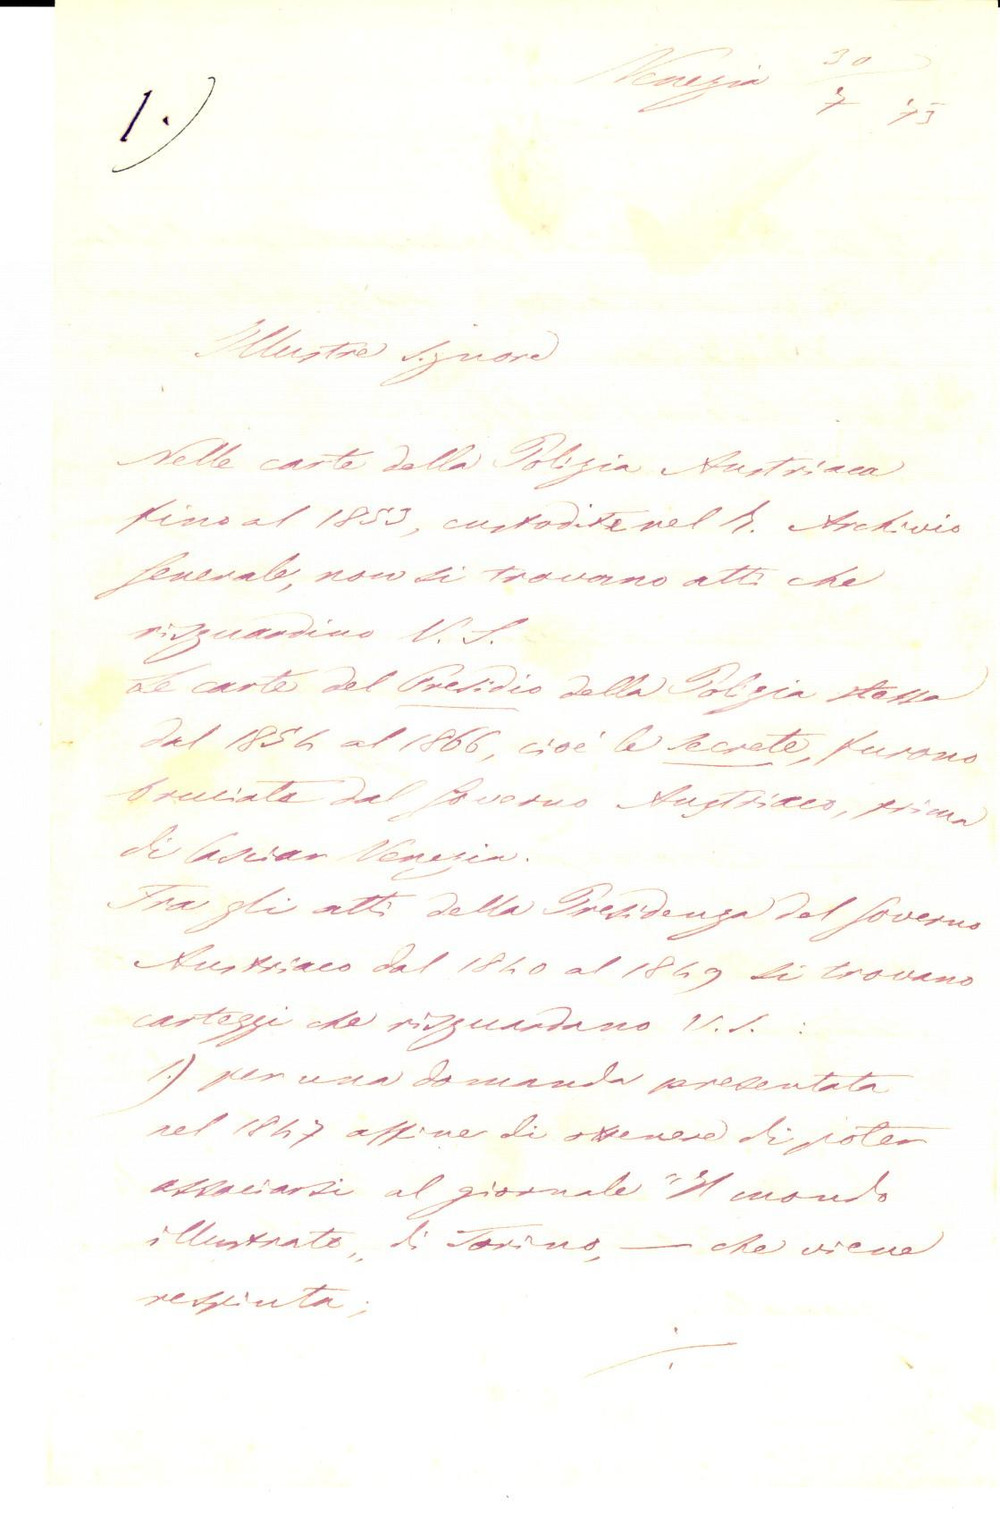 Venezia 30/7 '75
1.)
Illustre Signore
Nelle carte della Polizia Austriaca
fino al 1853, custodite nel R. Archivio
Generale, non si trovano atti che
risguardino V. S.
Le carte del Presidio della Polizia stessa
dal 1854 al 1866, cioè le secrete, furono
bruciate dal Governo Austriaco, prima
di lasciar Venezia.
Tra gli atti della Presidenza del Governo
Austriaco dal 1840 al 1849 si trovano
carteggi che risguardano V. S. :
1.) per una domanda presentata
nel 1847 affine di ottenere di poter
associarsi al giornale "Il mondo
illustrato„ di Torino, — che viene
respinta;
./.